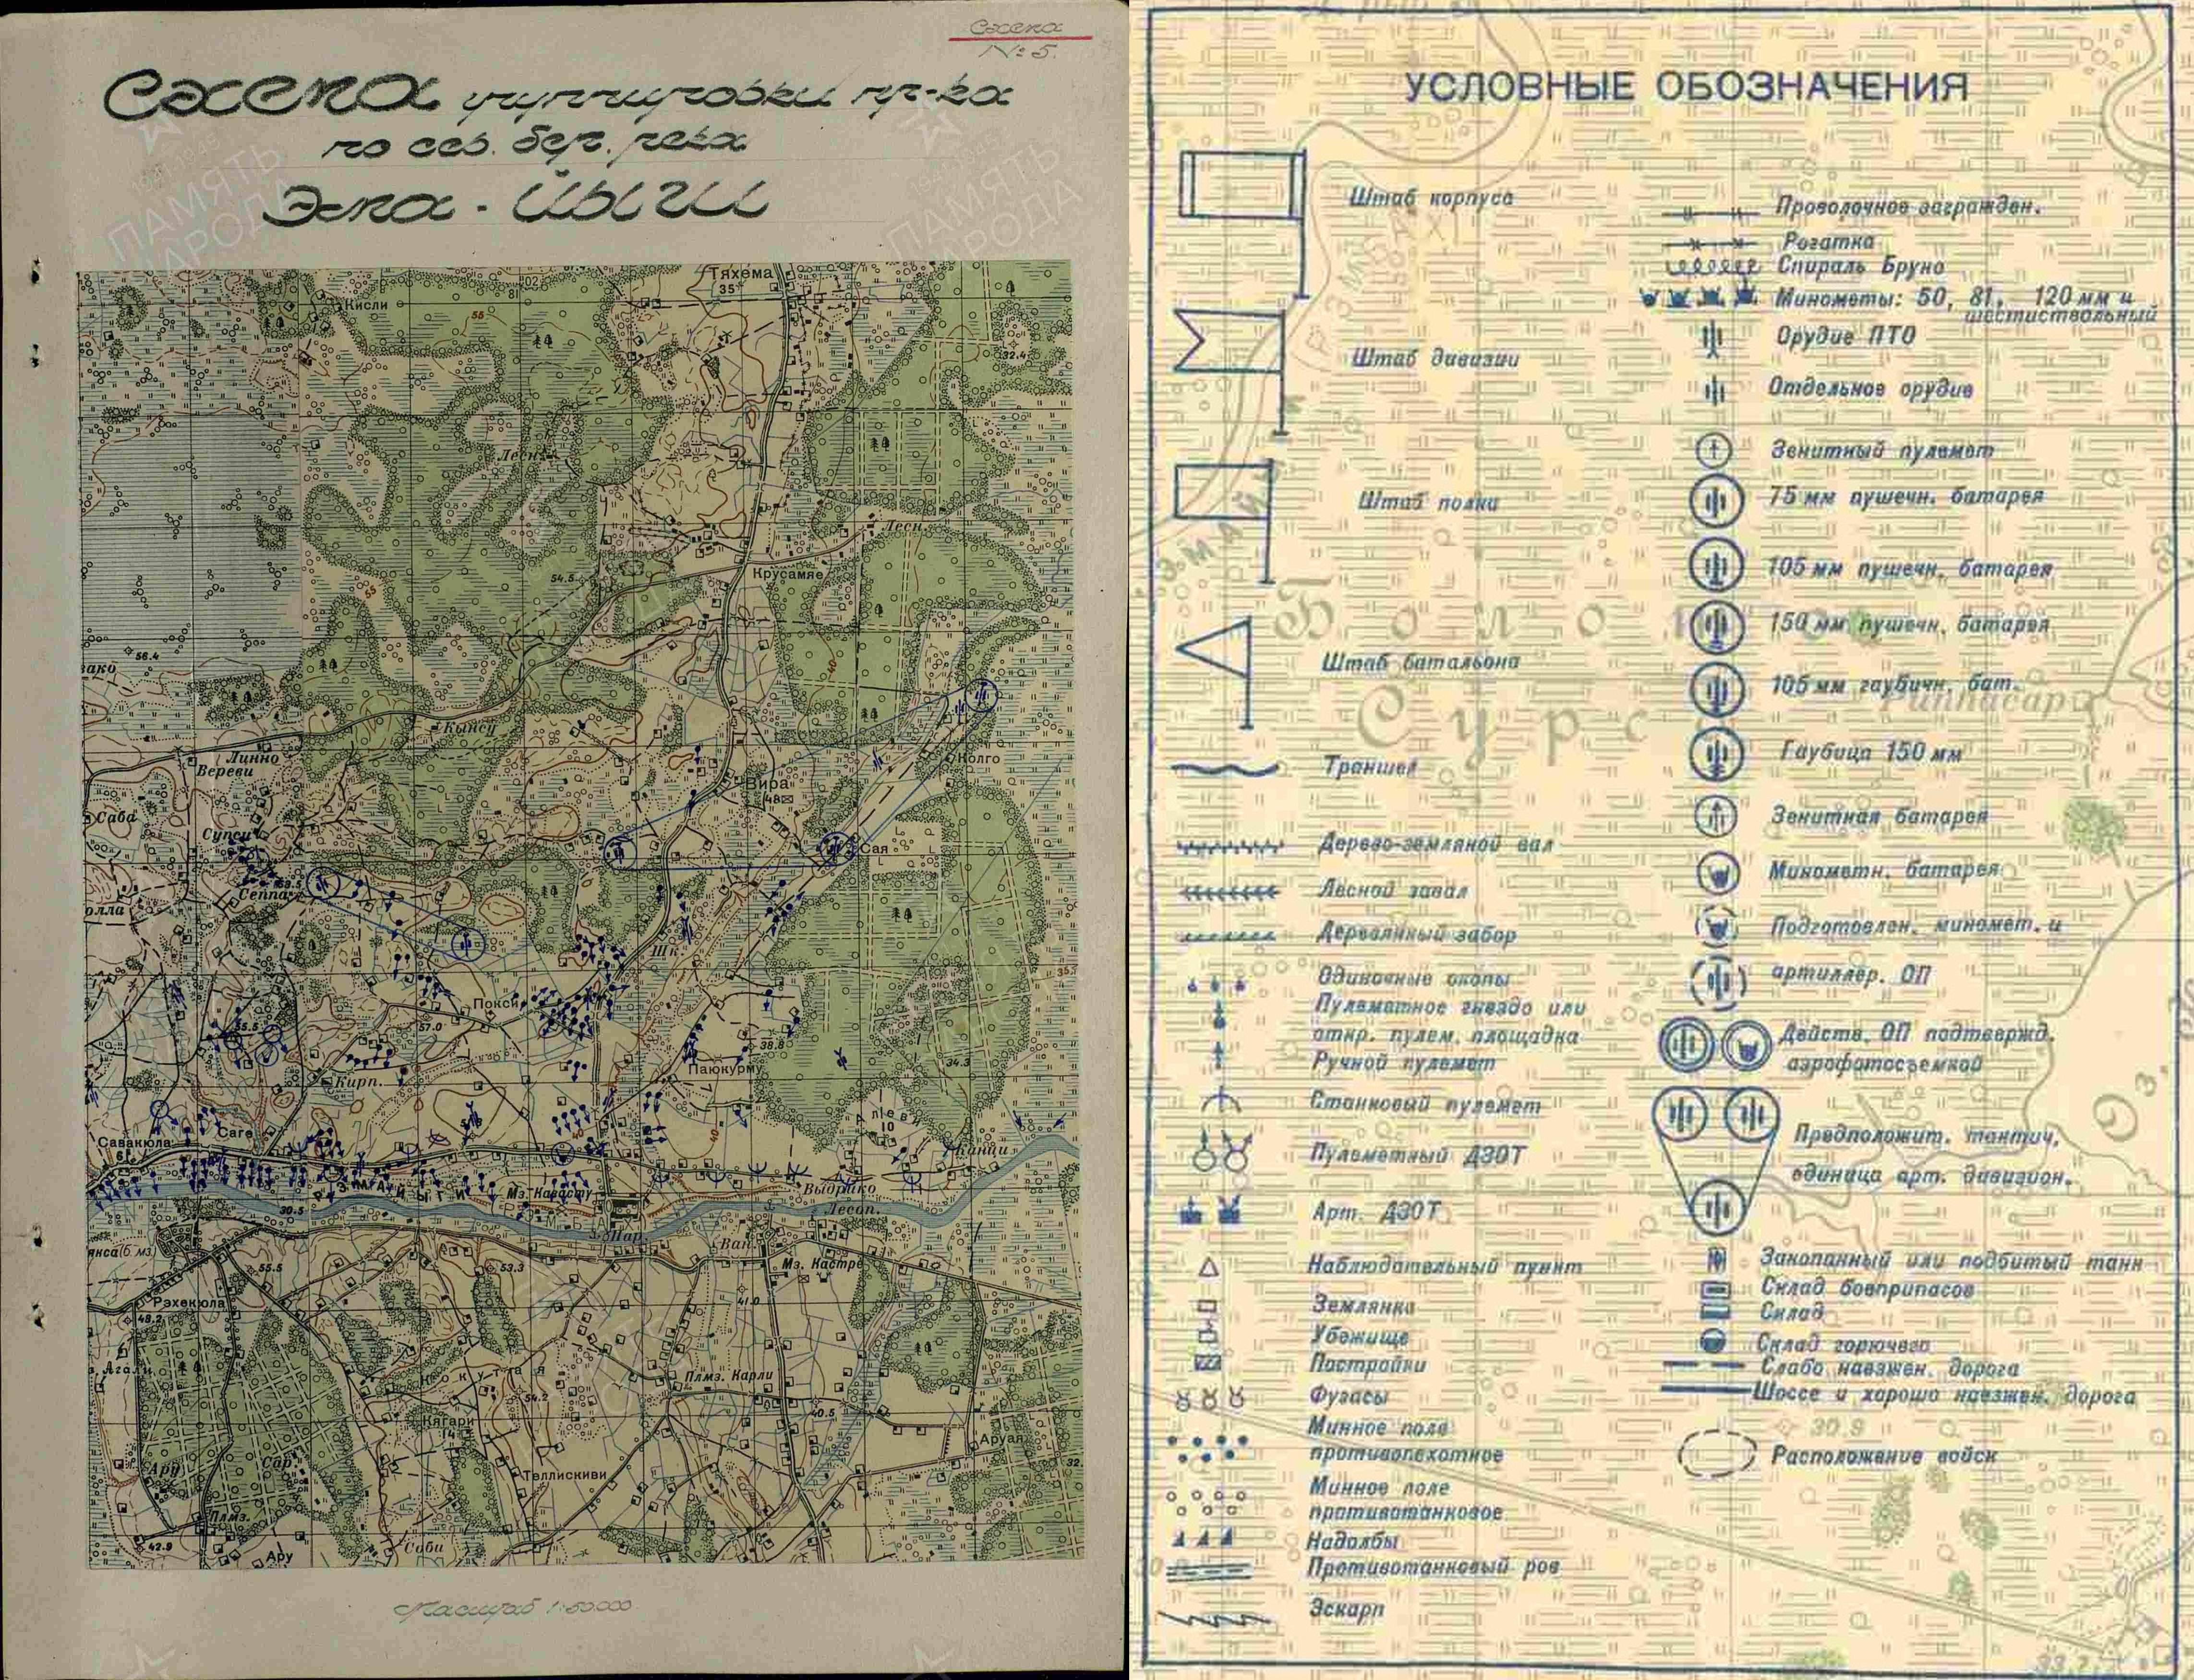 Схема
№ 5.
Схема группировки пр-ка
по сев. бер. реки
Эма-Йыги
ПАМЯТЬ
НАРОДА
ПАМЯТЬ
НАРОДА
Тяхема
35
Кисли
81
55
32.4
Лесн.
Лесн.
Крусамяе
54.5
55
40
56.4
Кынсу
Линно
Вереви
Колго
Вира
48
Саба
Супси
Сая
Сеппа
олла
Шк.
Покси
57.0
55.5
38.8
Паюкурму
34.3
Кирп.
Алеви
10
40
Савакюла
6
Саге
Канци
Мз. Кавасту
Выбрако
Лесоп.
30.5
Пар.
Ван.
Мз. Кастре
55.5
53.3
Рэхекюла
48.2
41.0
Агали
Кокутая
Плмз. Карли
54.2
40.5
Кягари
14
Аруая
Ару
Сар.
32.
Теллискиви
Плмз.
42.9
Ару
Соби
Масштаб 1:50000
УСЛОВНЫЕ ОБОЗНАЧЕНИЯ
Штаб корпуса
Штаб дивизии
Штаб полка
Штаб батальона
Траншея
Дерево-земляной вал
Лесной завал
Деревянный забор
Одиночные окопы
Пулеметное гнездо или
откр. пулем. площадка
Ручной пулемет
Станковый пулемет
Пулеметный ДЗОТ
Арт. ДЗОТ
Наблюдательный пункт
Землянка
Убежище
Постройки
Фугасы
Минное поле
противопехотное
Минное поле
противотанковое
Надолбы
Противотанковый ров
Эскарп
Проволочное загражден.
Рогатка
Спираль Бруно
Минометы: 50, 81, 120 мм и
шестиствольный
Орудие ПТО
Отдельное орудие
Зенитный пулемет
75 мм пушечн. батарея
105 мм пушечн. батарея
150 мм пушечн. батарея
105 мм гаубичн. бат.
Гаубица 150 мм
Зенитная батарея
Минометн. батарея
Подготовлен. миномет. и
артиллер. ОП
Действ. ОП подтвержд.
аэрофотосъемкой
Предположит. тактич.
единица арт. дивизион.
Закопанный или подбитый танк
Склад боеприпасов
Склад
Склад горючего
Слабо наезжен. дорога
Шоссе и хорошо наезжен. дорога
Расположение войск
Боло
Сурс
30.9